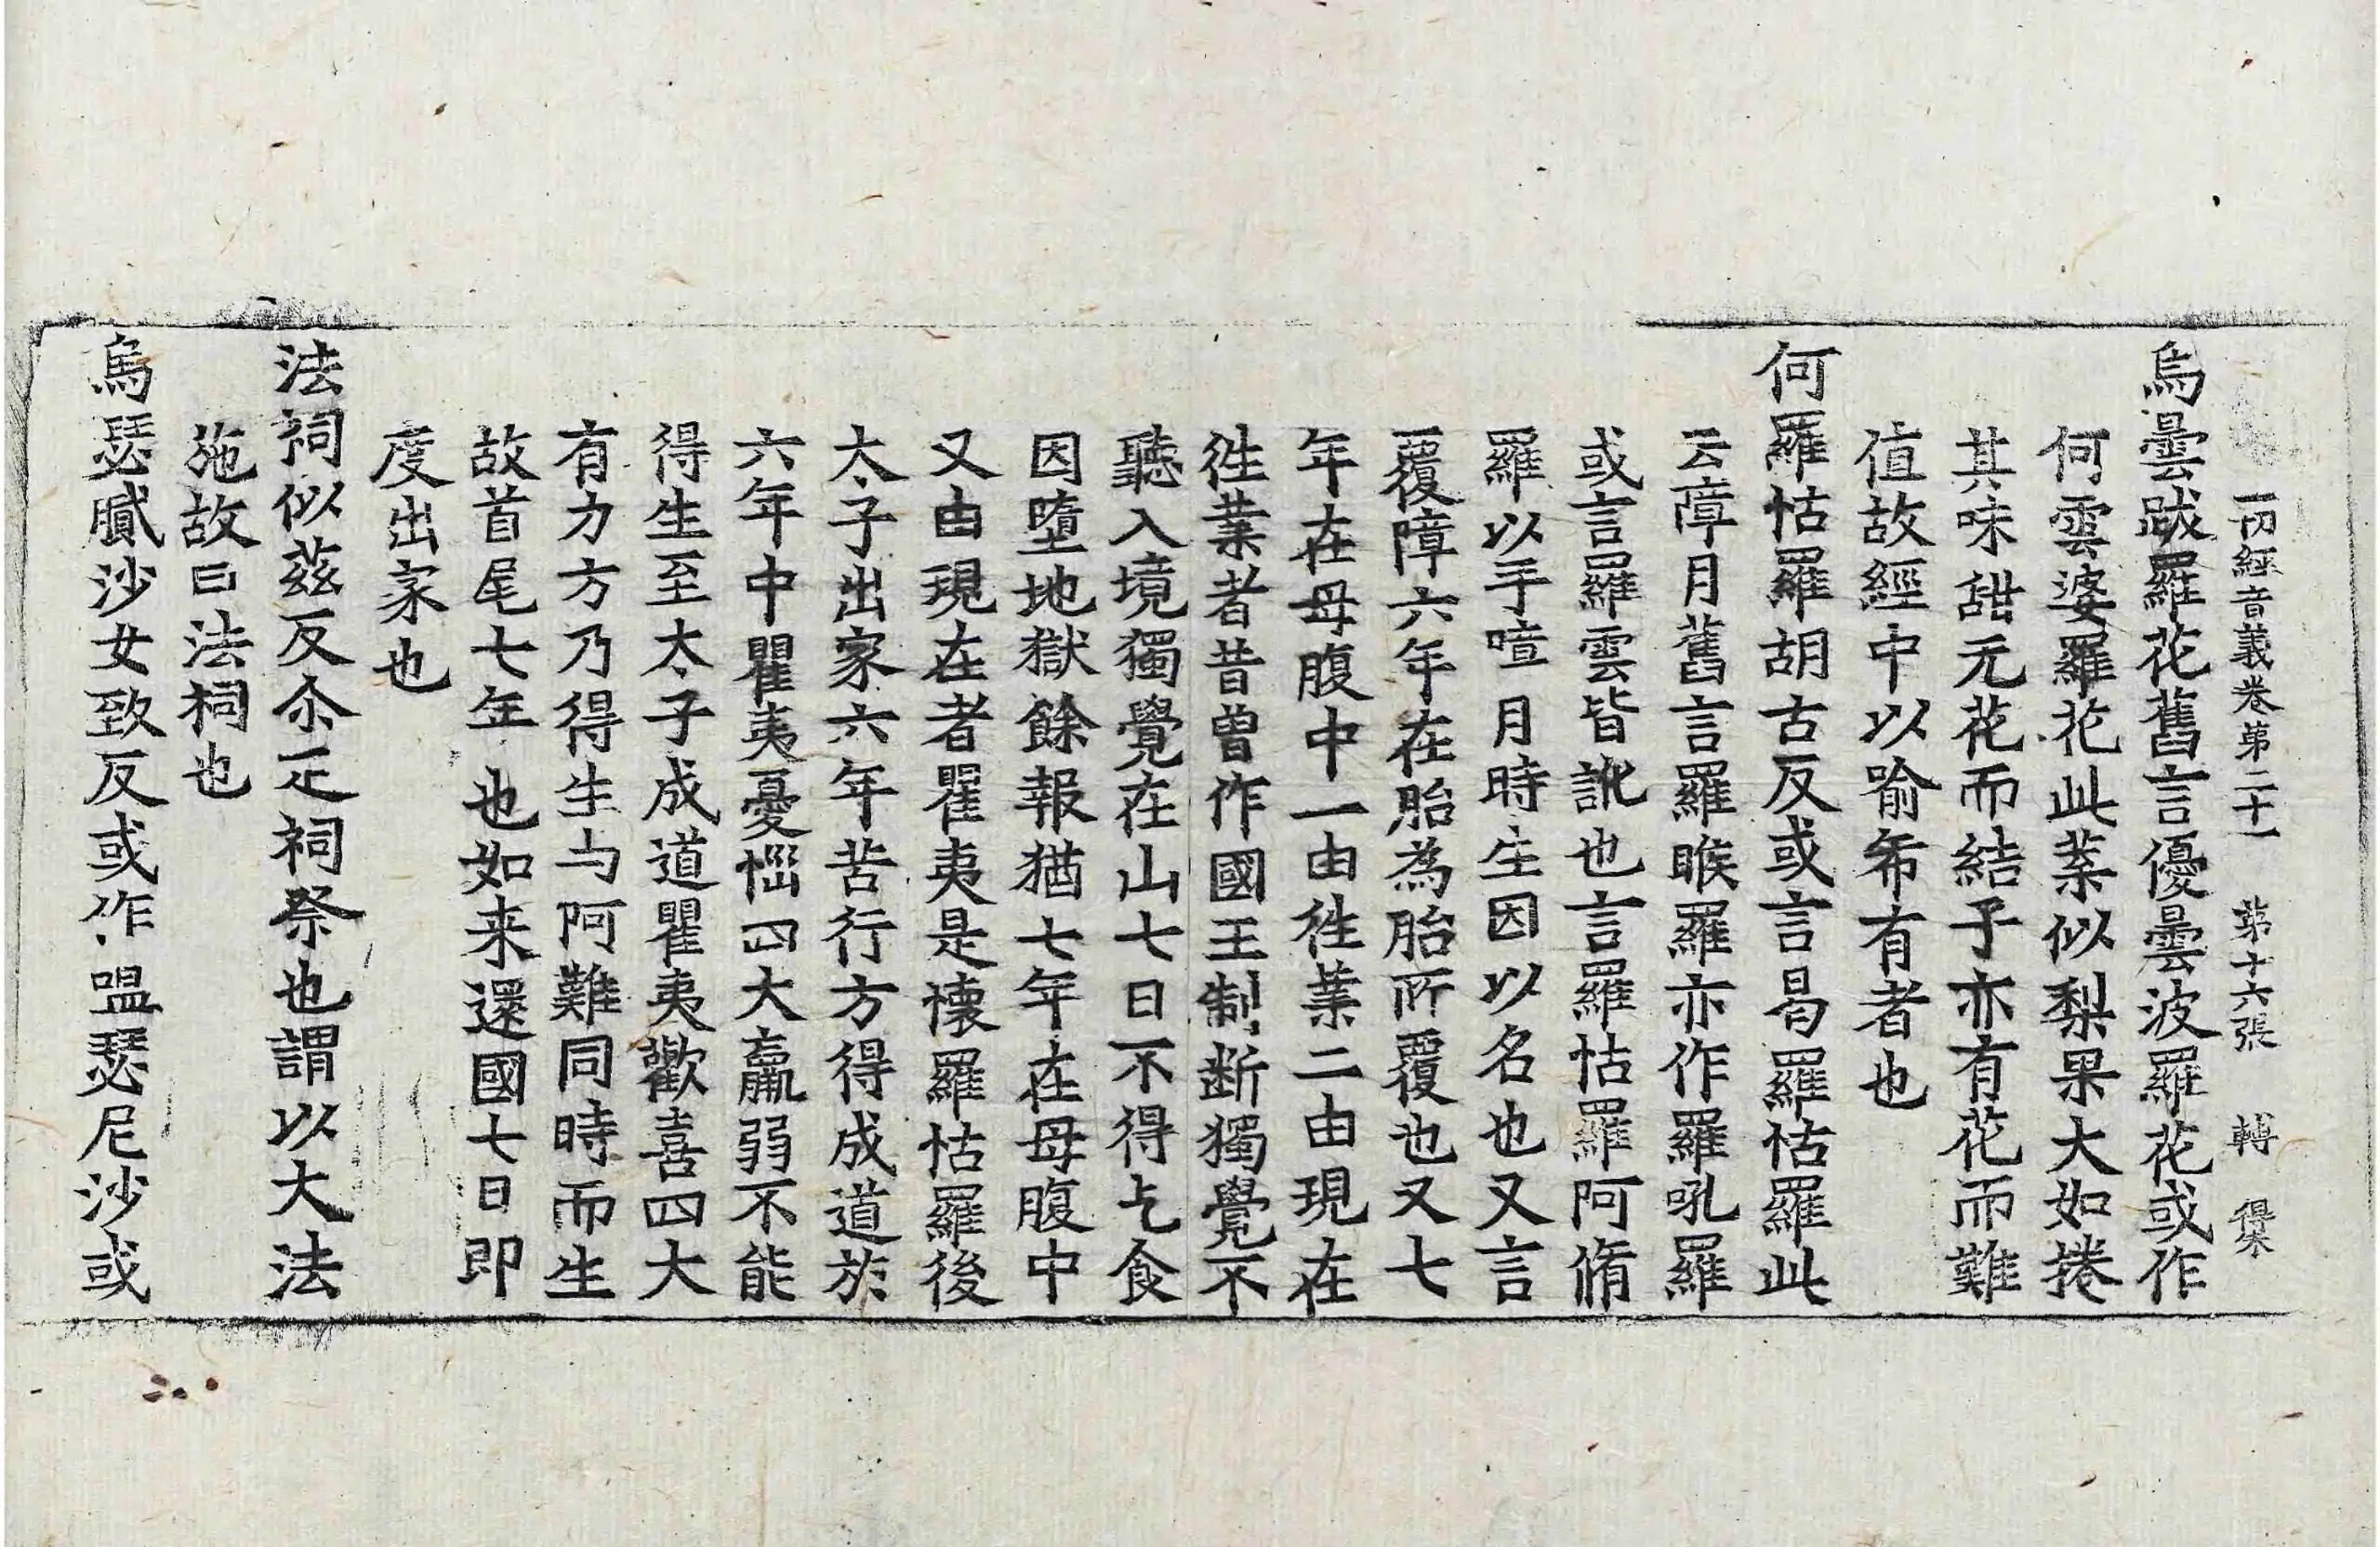 一切經音義卷第二十一 第十六張 轉
烏曇跋羅花舊言優曇波羅花或作
何雲婆羅花此葉似梨果大如捲
其味甜无花而結子亦有花而難
值故經中以喻希有者也
何羅怙羅胡古反或言曷羅怙羅此
云障月舊言羅睺羅亦作羅吼羅
或言羅雲皆訛也言羅怙羅阿脩
羅以手障月時生因以名也又言
覆障六年在胎為胎所覆也又七
年在母腹中一由往業二由現在
往業者昔曾作國王制斷獨覺不
聽入境獨覺在山七日不得乞食
因墮地獄餘報猶七年在母腹中
又由現在者瞿夷是懷羅怙羅後
太子出家六年苦行方得成道於
六年中瞿夷憂惱四大羸弱不能
得生至太子成道瞿夷歡喜四大
有力方乃得生与阿難同時而生
故首尾七年也如来還國七日即
度出家也
法祠似茲反尒疋祠祭也謂以大法
施故曰法祠也
烏瑟膩沙女致反或作嗢瑟尼沙或